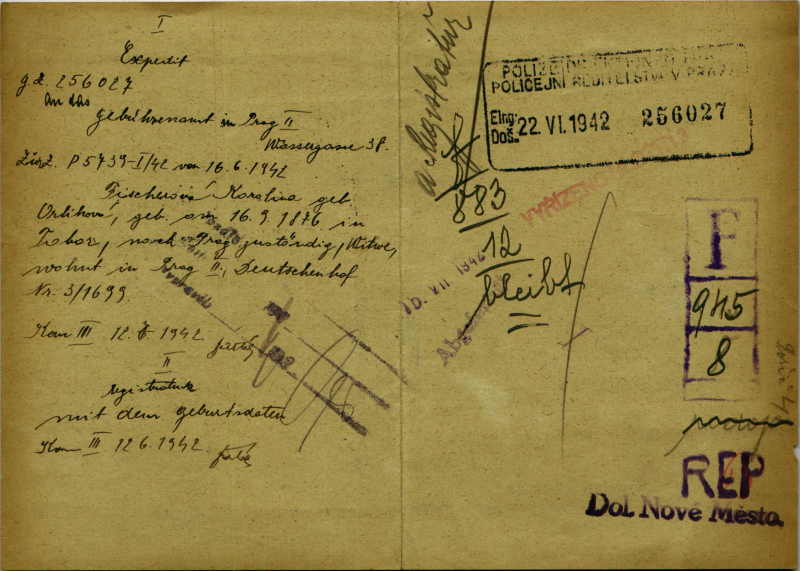 I
Expedit
256027
An das
Gebührenamt in Prag II
Wassergasse 38.
P 5739-I/42 von 16.6.1942
Fischerová Karolina geb.
Orlíková, geb. am 16.9.1876 in
Tabor, nach Prag zuständig, Witwe,
wohnt in Prag II., Deutschenhof
Nr. 3/1699
Kan III 12. 6. 1942
II
Registratur
mit dem Geburtsdaten
Kan III 12 6. 1942
POLICEJNÍ ŘEDITELSTVÍ V PRAZE
Eing.
Doš. 22. VI. 1942 256027
883
12
bleibt
VII 1942
F
945
8
REP
Dol. Nové Město